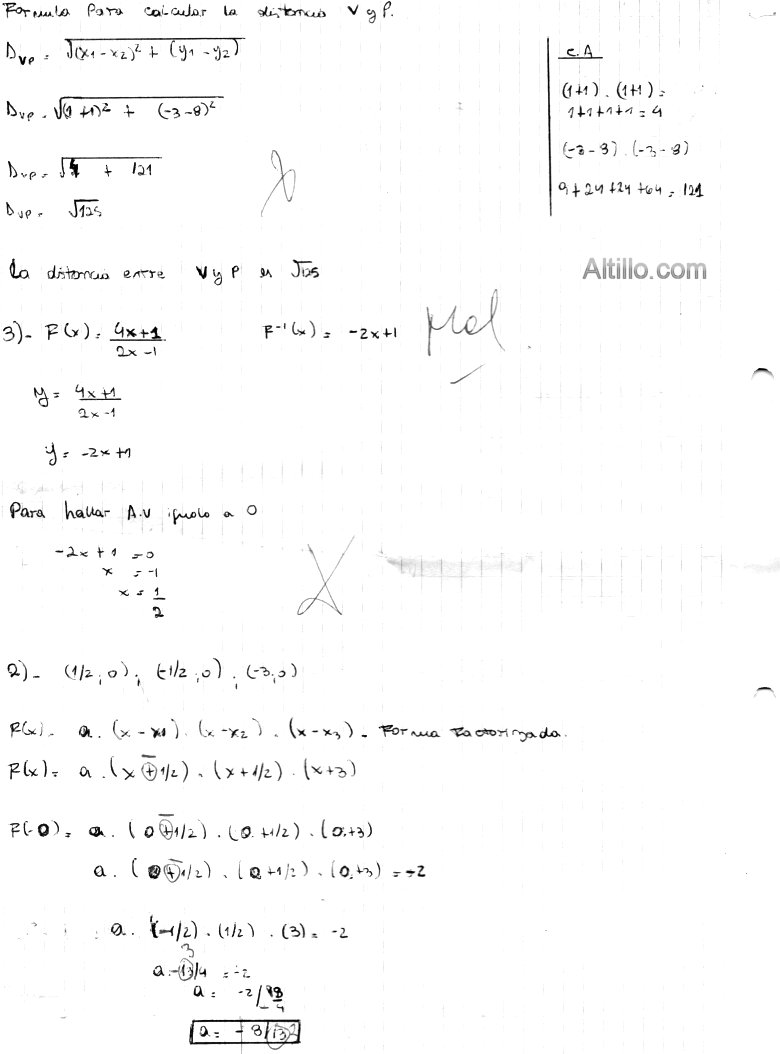 Formula Para calcular la distancia V y P.
D_VP = √(x1 - x2)² + (y1 - y2)
D_VP = √(1 + 1)² + (-3 - 8)²
D_VP = √4 + 121
D_VP = √125
C.A
(1+1) . (1+1) =
1+1+1+1 = 4
(-3 - 8) . (-3 - 8)
9 + 24 + 24 + 64 = 121
La distancia entre V y P es √125
Altillo.com
3)- F(x) = 4x+1 / 2x-1 F⁻¹(x) = -2x+1 Mal
y = 4x+1 / 2x-1
y = -2x+1
Para hallar A.V igualo a 0
-2x + 1 = 0
x = -1
x = 1/2
2)- (1/2 ; 0) ; (-1/2 ; 0) ; (-3 ; 0)
F(x) = a . (x - x1) . (x - x2) . (x - x3) - Forma Factorizada.
F(x) = a . (x + 1/2) . (x + 1/2) . (x + 3)
F(-0) = a . (0 + 1/2) . (0 + 1/2) . (0 + 3)
a . (0 + 1/2) . (0 + 1/2) . (0 + 3) = -2
a . (-1/2) . (1/2) . (3) = -2
3
a . -13/4 = -2
a = -2/
a = - 8/13